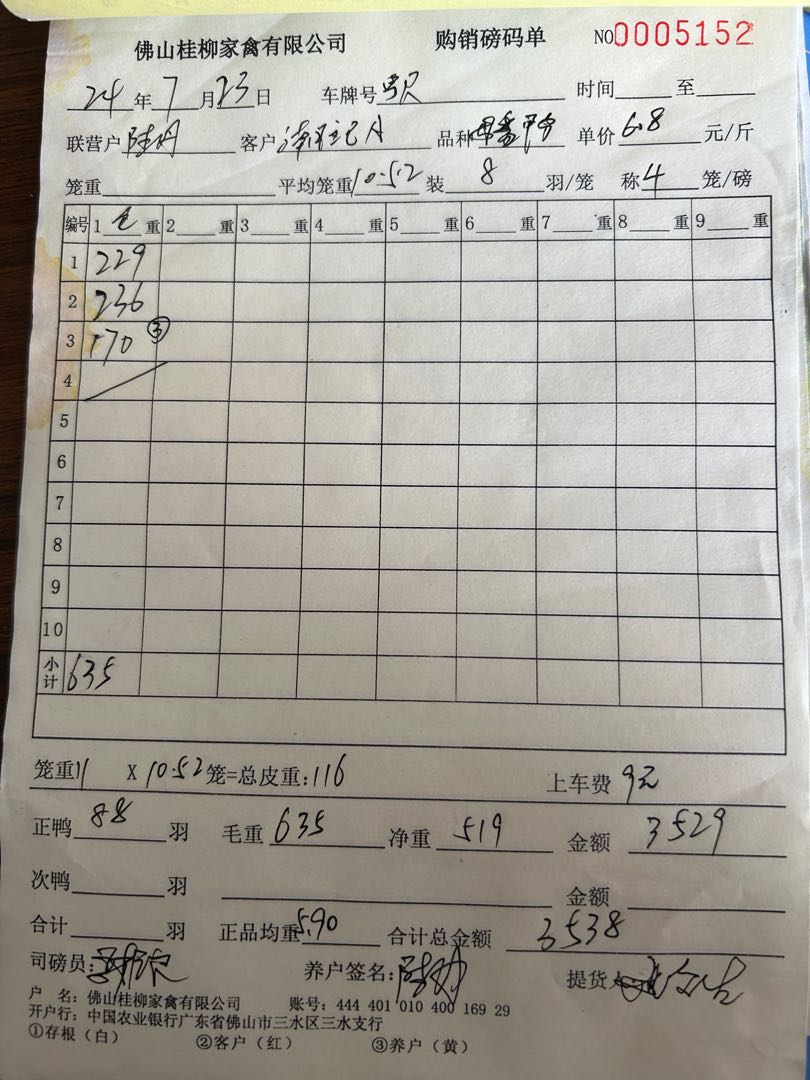 佛山桂柳家禽有限公司 购销磅码单 NO0005152
24年7月23日 车牌号 时间 至
联营户 客户 品种 单价6.8元/斤
笼重 平均笼重10.52装8羽/笼 称4笼/磅
编号 1毛重 2 重 3 重 4 重 5 重 6 重 7 重 8 重 9 重
1 229
2 236
3 170 ③
4
5
6
7
8
9
10
小计 635
笼重11 X 10.52笼=总皮重:116 上车费 9元
正鸭 88 羽 毛重 635 净重 519 金额 3529
次鸭 羽 金额
合计 羽 正品均重5.90 合计总金额 3538
司磅员: 养户签名: 提货
户 名: 佛山桂柳家禽有限公司 账号: 444 401 010 400 169 29
开户行: 中国农业银行广东省佛山市三水区三水支行
①存根（白） ②客户（红） ③养户（黄）